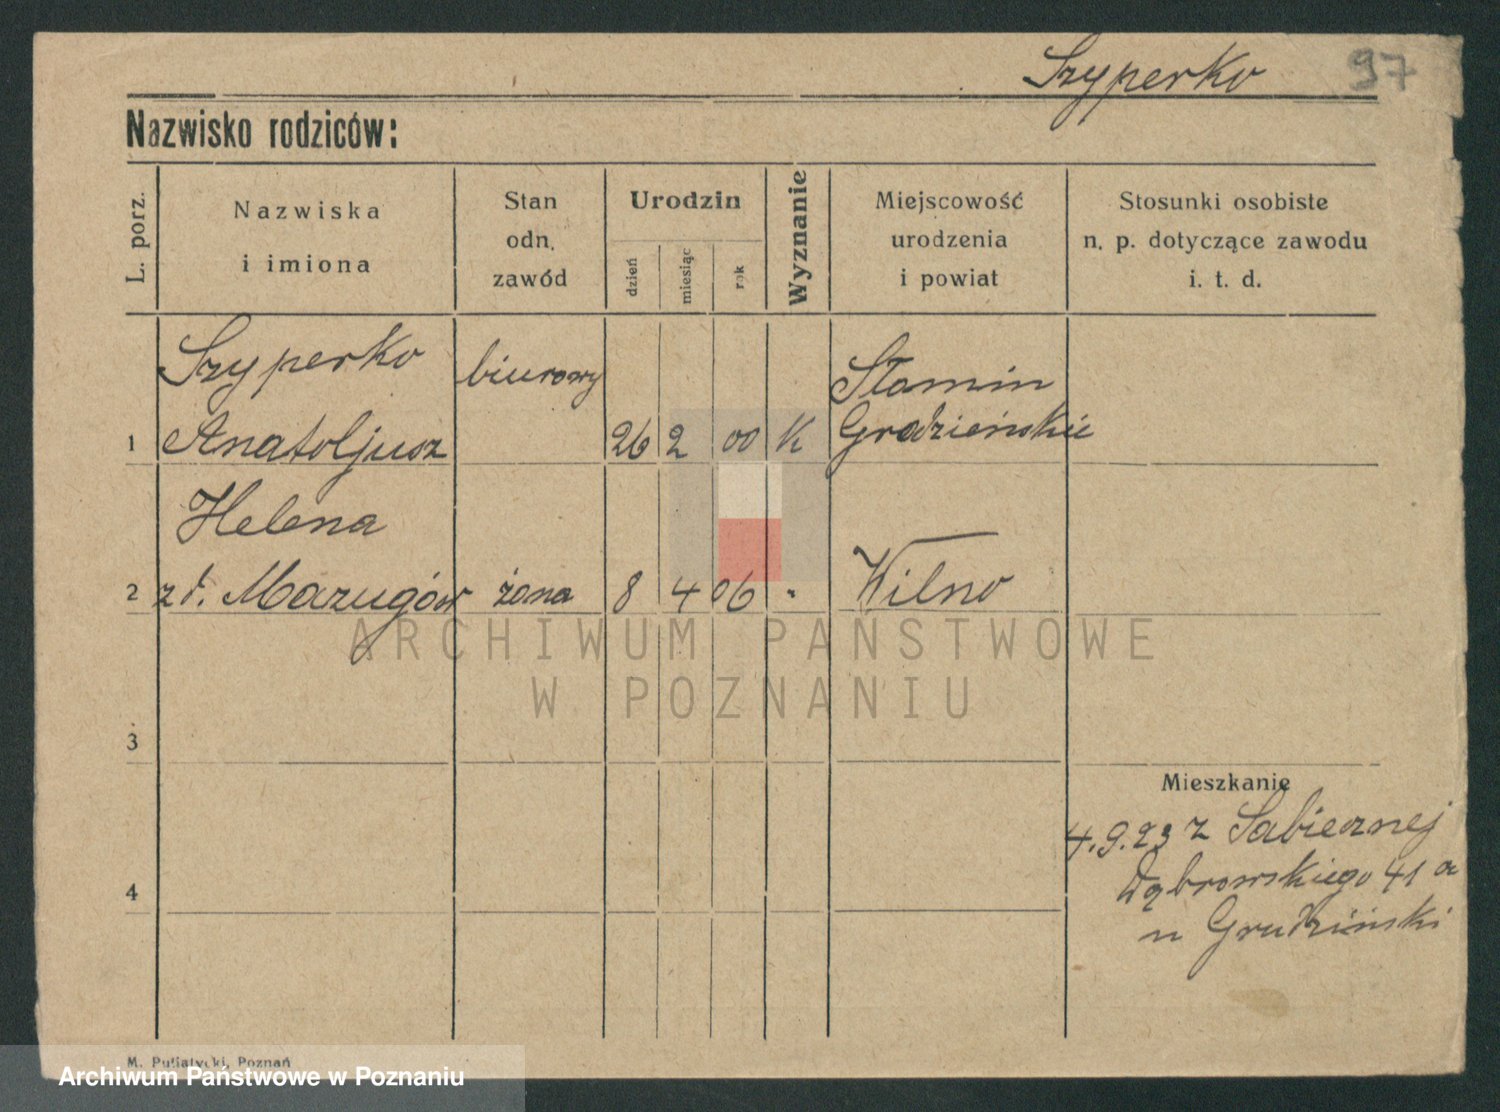 Szyperko 97
Nazwisko rodziców:
L. porz.
Nazwiska
i imiona
Stan
odn.
zawód
Urodzin
dzień
miesiąc
rok
Wyznanie
Miejscowość
urodzenia
i powiat
Stosunki osobiste
n. p. dotyczące zawodu
i. t. d.
Szyperko biurowy Słomin
1 Anatoljusz 26 2 00 K Grodzieńskie
Helena
2 z d. Mazugów żona 8 4 06 " Wilno
ARCHIWUM PAŃSTWOWE
W POZNANIU
3
Mieszkanie
4.9.23 z
4 Dąbrowskiego 41 a
u Grudziński
M. Putiatycki, Poznań
Archiwum Państwowe w Poznaniu